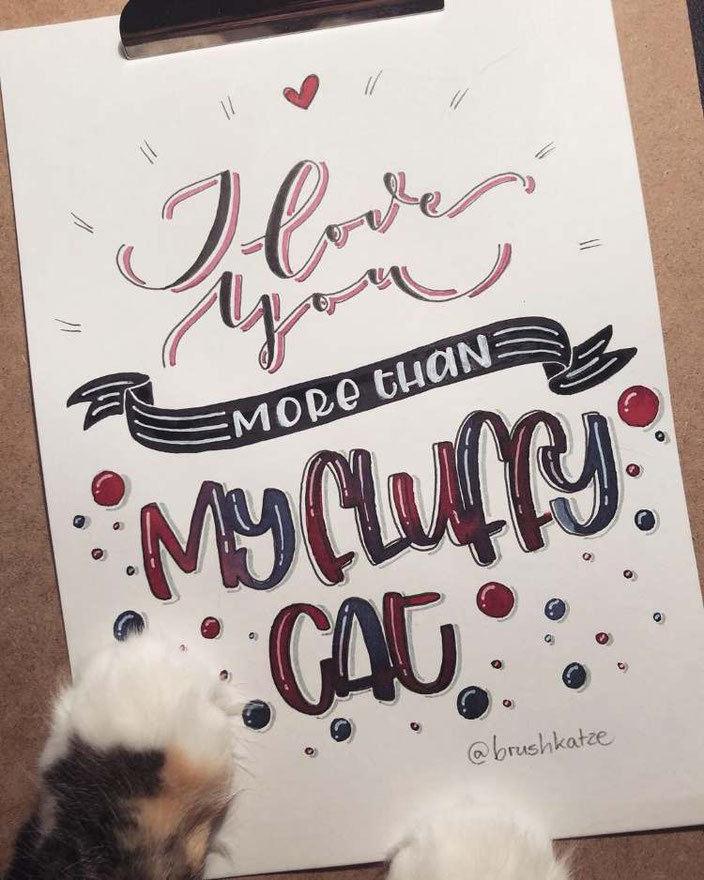 I love
You
MORE THAN
MY FLUFFY
CAT
@brushkatze